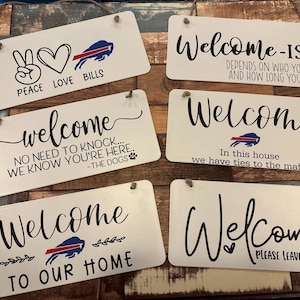 PEACE LOVE BILLS
Welcome-IS
DEPENDS ON WHO YO
AND HOW LONG YOU
welcome
NO NEED TO KNOCK...
WE KNOW YOU'RE HERE.
-THE DOGS
Welcom
In this house
we have ties to the maf
Welcome
TO OUR HOME
Welcom
PLEASE LEAVE